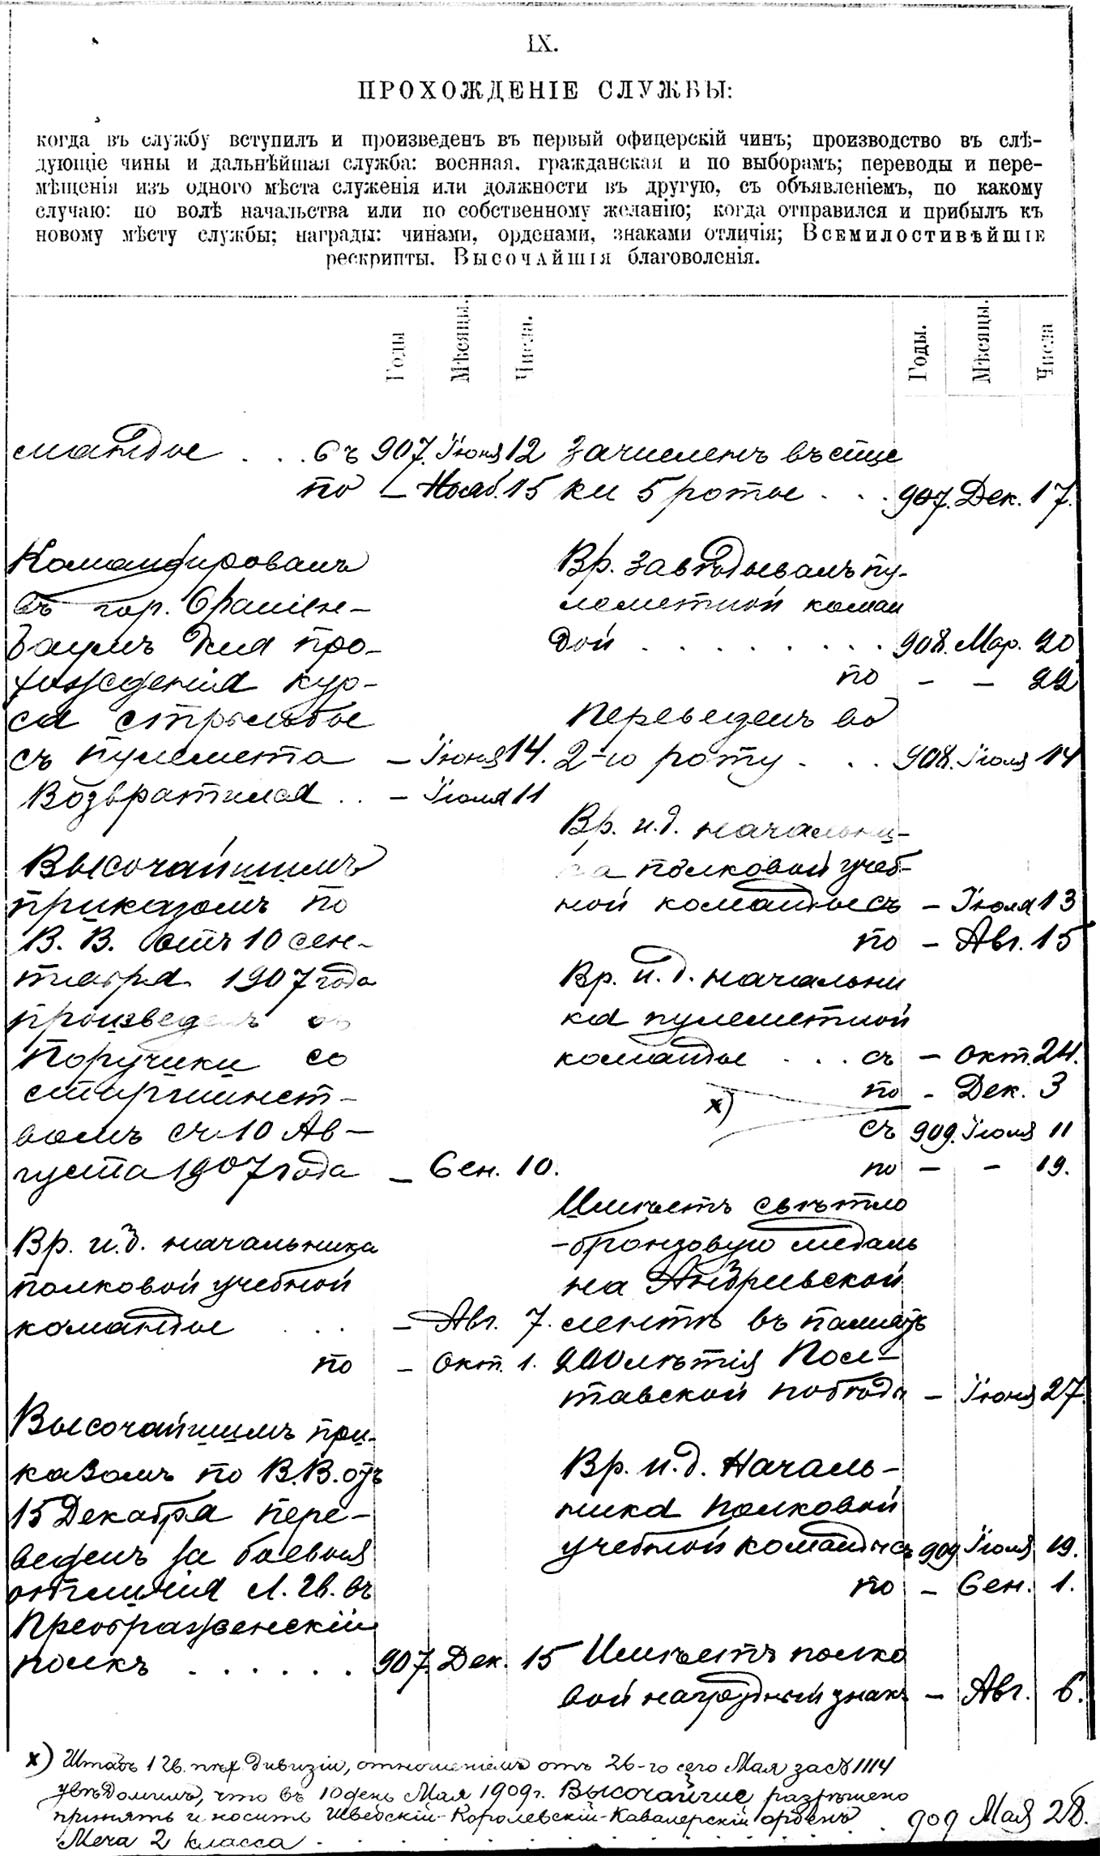 IX.
ПРОХОЖДЕНІЕ СЛУЖБЫ:
когда въ службу вступилъ и произведенъ въ первый офицерскій чинъ; производство въ слѣ-
дующіе чины и дальнѣйшая служба: военная, гражданская и по выборамъ; переводы и пере-
мѣщенія изъ одного мѣста служенія или должности въ другую, съ объявленіемъ, по какому
случаю: по волѣ начальства или по собственному желанію; когда отправился и прибылъ къ
новому мѣсту службы; награды: чинами, орденами, знаками отличія; Всемилостивѣйшіе
рескрипты. Высочайшія благоволенія.
Годы
Мѣсяцы.
Числа.
мандѣ . . . Съ 907. Іюня 12
по — Нояб. 15
Командированъ
въ гор. Ораніен-
баумъ для про-
хожденія кур-
са стрѣльбы
съ пулемета — Іюня 14.
Возвратился . . — Іюля 11
Высочайшимъ
приказомъ по
В. В. отъ 10 сен-
тября 1907 года
произведенъ въ
Поручики со
старшинст-
вомъ съ 10 Ав-
густа 1907 года — Сен. 10.
Вр. и. д. начальника
полковой учебной
командѣ . . . — Авг. 7.
по — Окт. 1.
Высочайшимъ при-
казомъ по В. В. отъ
15 Декабря пере-
веденъ за боевыя
отличія Л. Гв. въ
Преображенскій
полкъ . . . . . . 907 Дек. 15
Годы.
Мѣсяцы.
Числа
Зачисленъ въ спис
ки 5 роты . . . 907. Дек. 17.
Вр. завѣдывалъ пу-
леметной коман
дой . . . . . . . . 908. Мар. 20
по — — 22
Переведенъ во
2-ю роту . . . 908. Іюля 14
Вр. и. д. начальни-
ка полковой учеб-
ной команды съ — Іюля 13
по — Авг. 15
Вр. и. д. начальни
ка пулеметной
команды . . . съ — Окт. 24.
по — Дек. 3
х)
съ 909. Іюля 11
по — — 19.
Имѣетъ свѣтло
-бронзовую медаль
на Андреевской
лентѣ въ память
200 лѣтія Пол-
тавской победы — Іюня 27.
Вр. и. д. Началь-
ника полковой
учебной команды съ 909 Іюля 19.
по — Сен. 1.
Имѣетъ полко
вой нагрудный знакъ — Авг. 6.
х) Штабъ 1 Гв. пѣх. дивизіи, отношеніемъ отъ 26-го сего Мая за № 1114
увѣдомилъ, что въ 10 день Мая 1909 г. Высочайше разрѣшено
принять и носить Шведскій-Королевскій-Кавалерскій орденъ
Меча 2 класса . . . . . . . . . . 909 Мая 28.